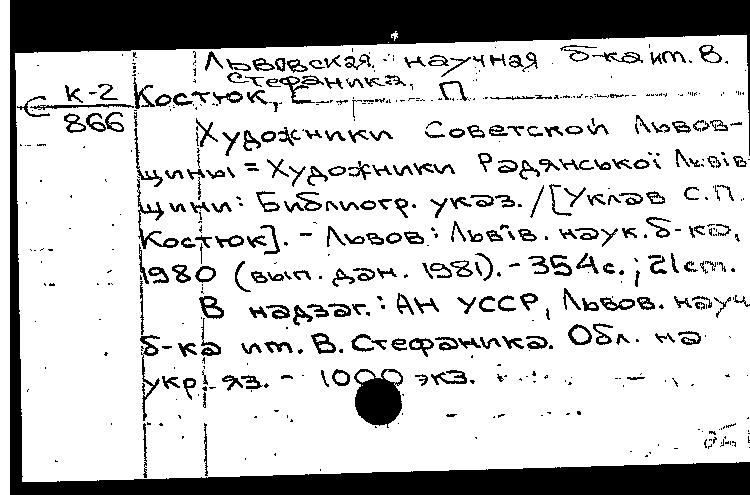 Львовская научная б-ка им. В.
Стефаника,
С К-2 Костюк, С П
866
Художники Советской Львов-
щины = Художники Радянської Львів
щини: Библиогр. указ. / [Уклав С.П.
Костюк]. - Львов: Львів. наук. б-ка,
1980 (вып. дан. 1981). - 354с.; 21см.
В надзаг.: АН УССР, Львов. науч
б-ка им. В. Стефаника. Обл. на
укр. яз. - 1000 экз.